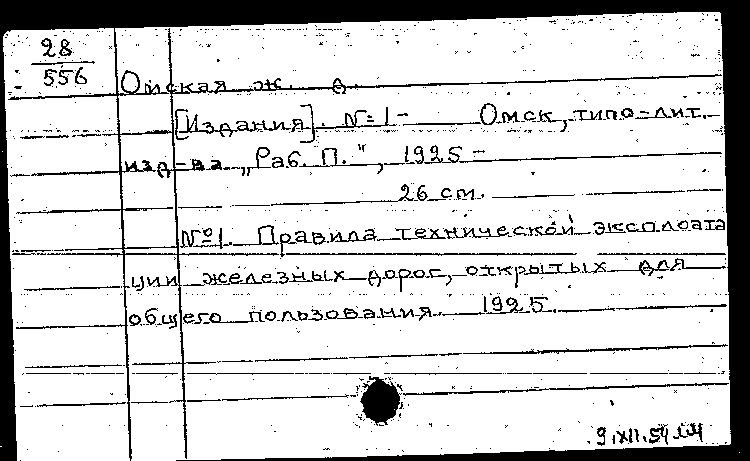 28
556
Омская ж. д.
[Издания]. №1- Омск, типо-лит.
изд-ва „Раб. П.", 1925-
26 см.
№1. Правила технической эксплоата
ции железных дорог, открытых для
общего пользования. 1925.
9.XII.54